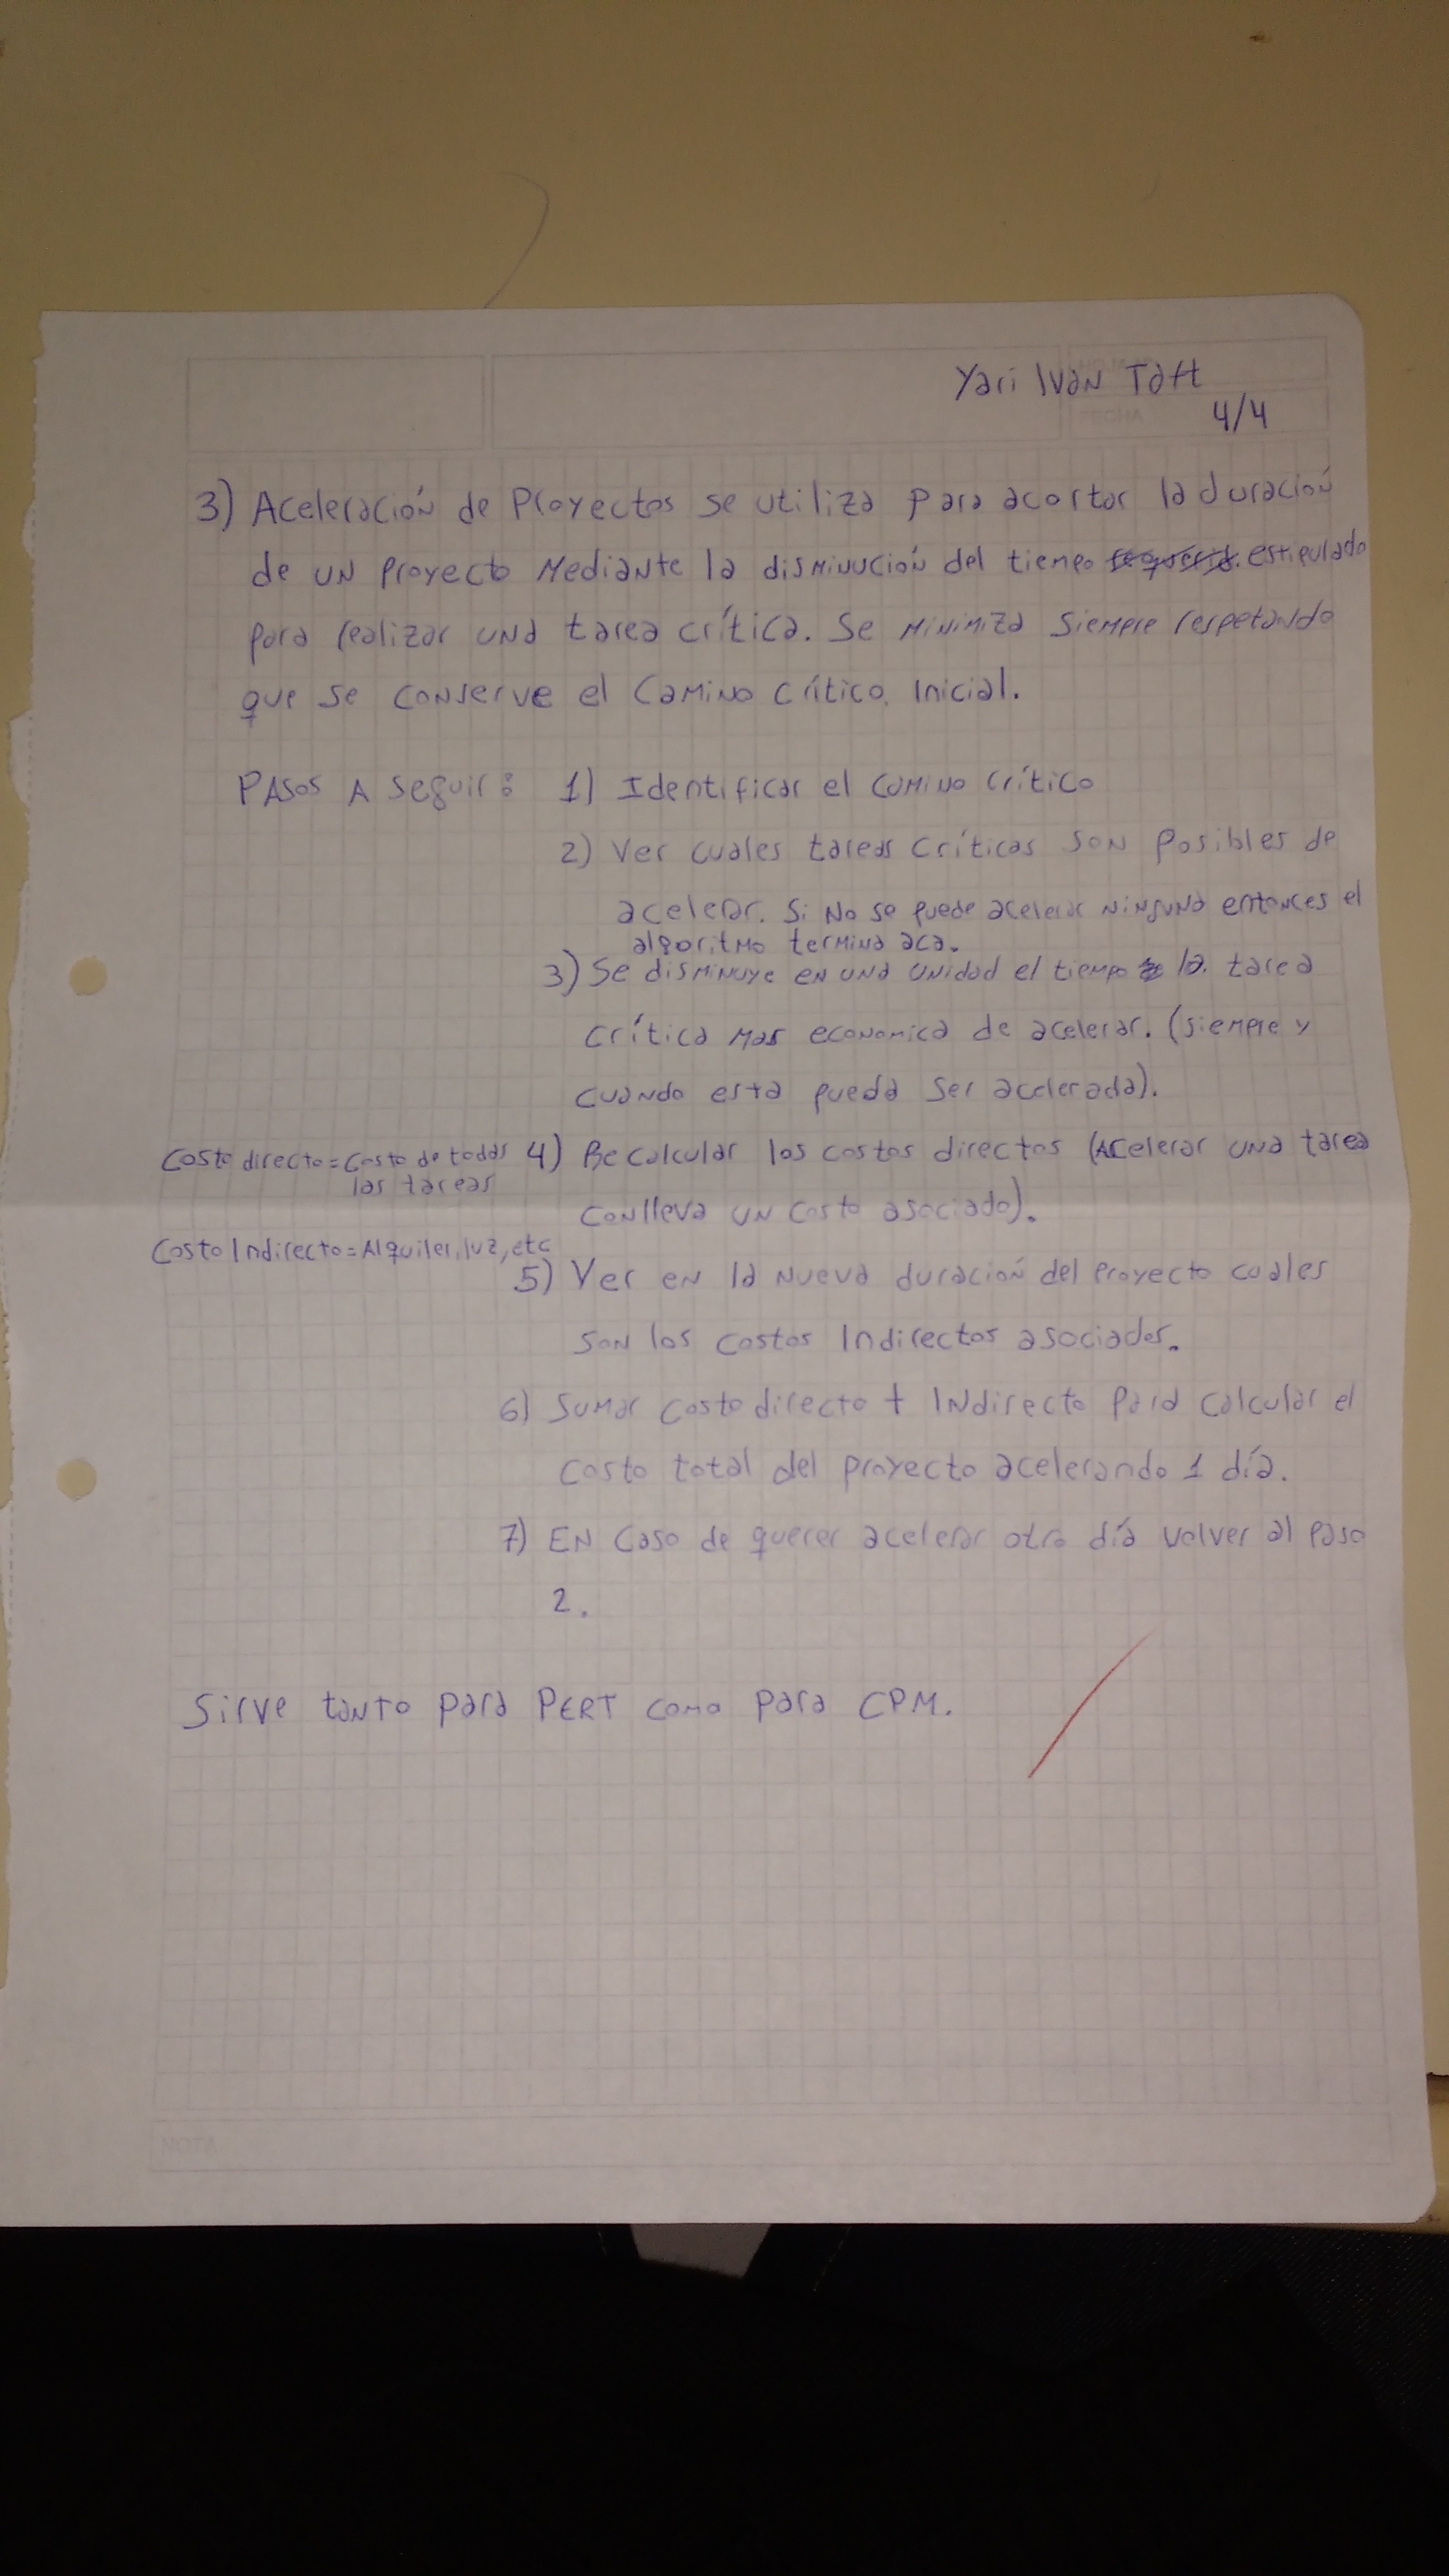 Yari Ivan Taft
4/4
3) Aceleración de Proyectos se utiliza para acortar la duración
de un proyecto mediante la disminución del tiempo estipulado
para realizar una tarea crítica. Se minimiza siempre respetando
que se conserve el camino crítico inicial.
Pasos a seguir: 1) Identificar el camino crítico
2) Ver cuales tareas críticas son posibles de
acelerar. Si no se puede acelerar ninguna entonces el
algoritmo termina aca.
3) Se disminuye en una unidad el tiempo la tarea
crítica mas economica de acelerar. (siempre y
cuando esta pueda ser acelerada).
Costo directo = Costo de todas
las tareas
4) Recalcular los costos directos (Acelerar una tarea
conlleva un costo asociado).
Costo Indirecto = Alquiler, luz, etc
5) Ver en la nueva duración del proyecto cuales
son los costos indirectos asociados.
6) Sumar costo directo + Indirecto para calcular el
costo total del proyecto acelerando 1 día.
7) En caso de querer acelerar otro día volver al paso
2.
Sirve tanto para PERT como para CPM.
NOTA